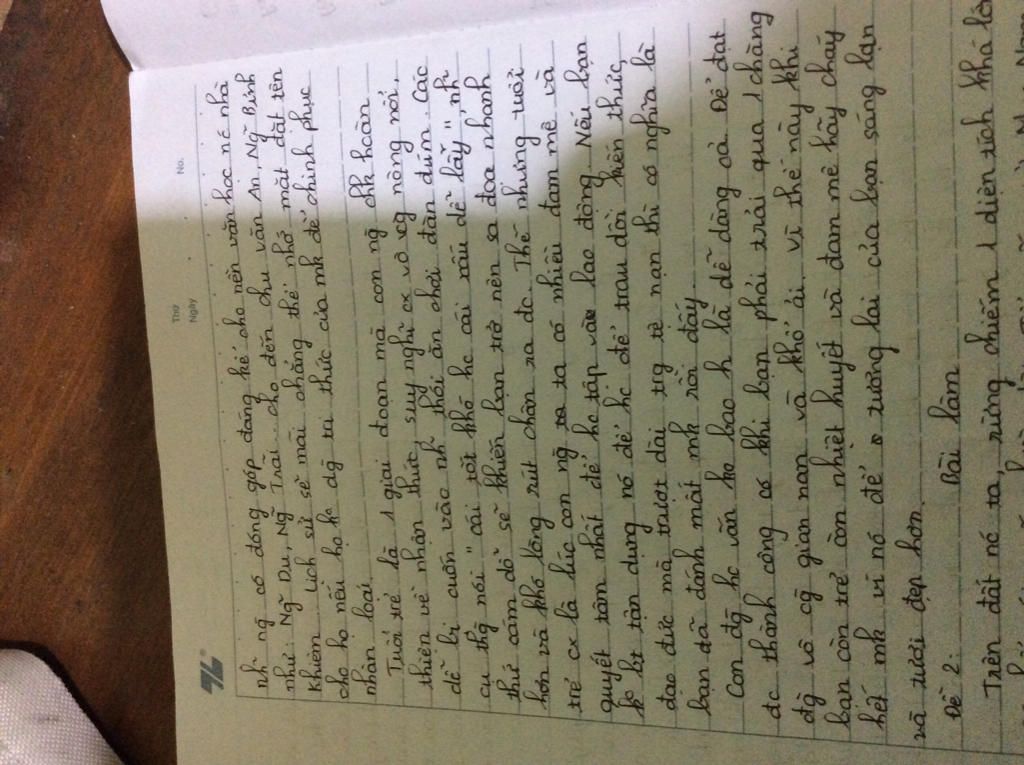 No.
Thứ
Ngày
nh ng có đóng góp đáng kể cho nền văn học nc nhà
như: Ng Du, Ng Trãi cho đến chu văn An, Ng Bỉnh
Khiêm Lịch sử sẽ mãi chẳng thể nhớ mặt đặt tên
cho họ nếu họ k dg tri thức của mk để chinh phục
nhân loại.
Tuổi trẻ là 1 giai đoạn mà con ng chk hoàn
thiện về nhận thức, suy nghĩ cx vô cg nông nổi,
dễ bị cuốn vào nh thói ăn chơi đàn đúm. Các
cụ thg nói "cái tốt khó hc cái xấu dễ lấy" nh
thứ cám dỗ sẽ khiến bạn trở nên sa đọa nhanh
hơn và khó lòng rút chân ra đc. Thế nhưng tuổi
trẻ cx là lúc con ng ta có nhiều đam mê và
quyết tâm nhất để hc tập vào lao động. Nếu bạn
ko bt tận dụng nó để hc để trau dồi kiến thức,
đạo đức mà trượt dài trg tệ nạn thì có nghĩa là
bạn đã đánh mất mk rồi đấy.
Con đg hc vấn ko bao h là dễ dàng cả. Để đạt
đc thành công có khi bạn phải trải qua 1 chặng
đg vô cg gian nan và khổ ải. vì thế này khi
bạn còn trẻ còn nhiệt huyết và đam mê hãy cháy
hết mk vì nó để tương lai của bạn sáng lạn
và tươi đẹp hơn.
Đề 2: Bài làm
Trên đất nc ta, rừng chiếm 1 diện tích khá lớn